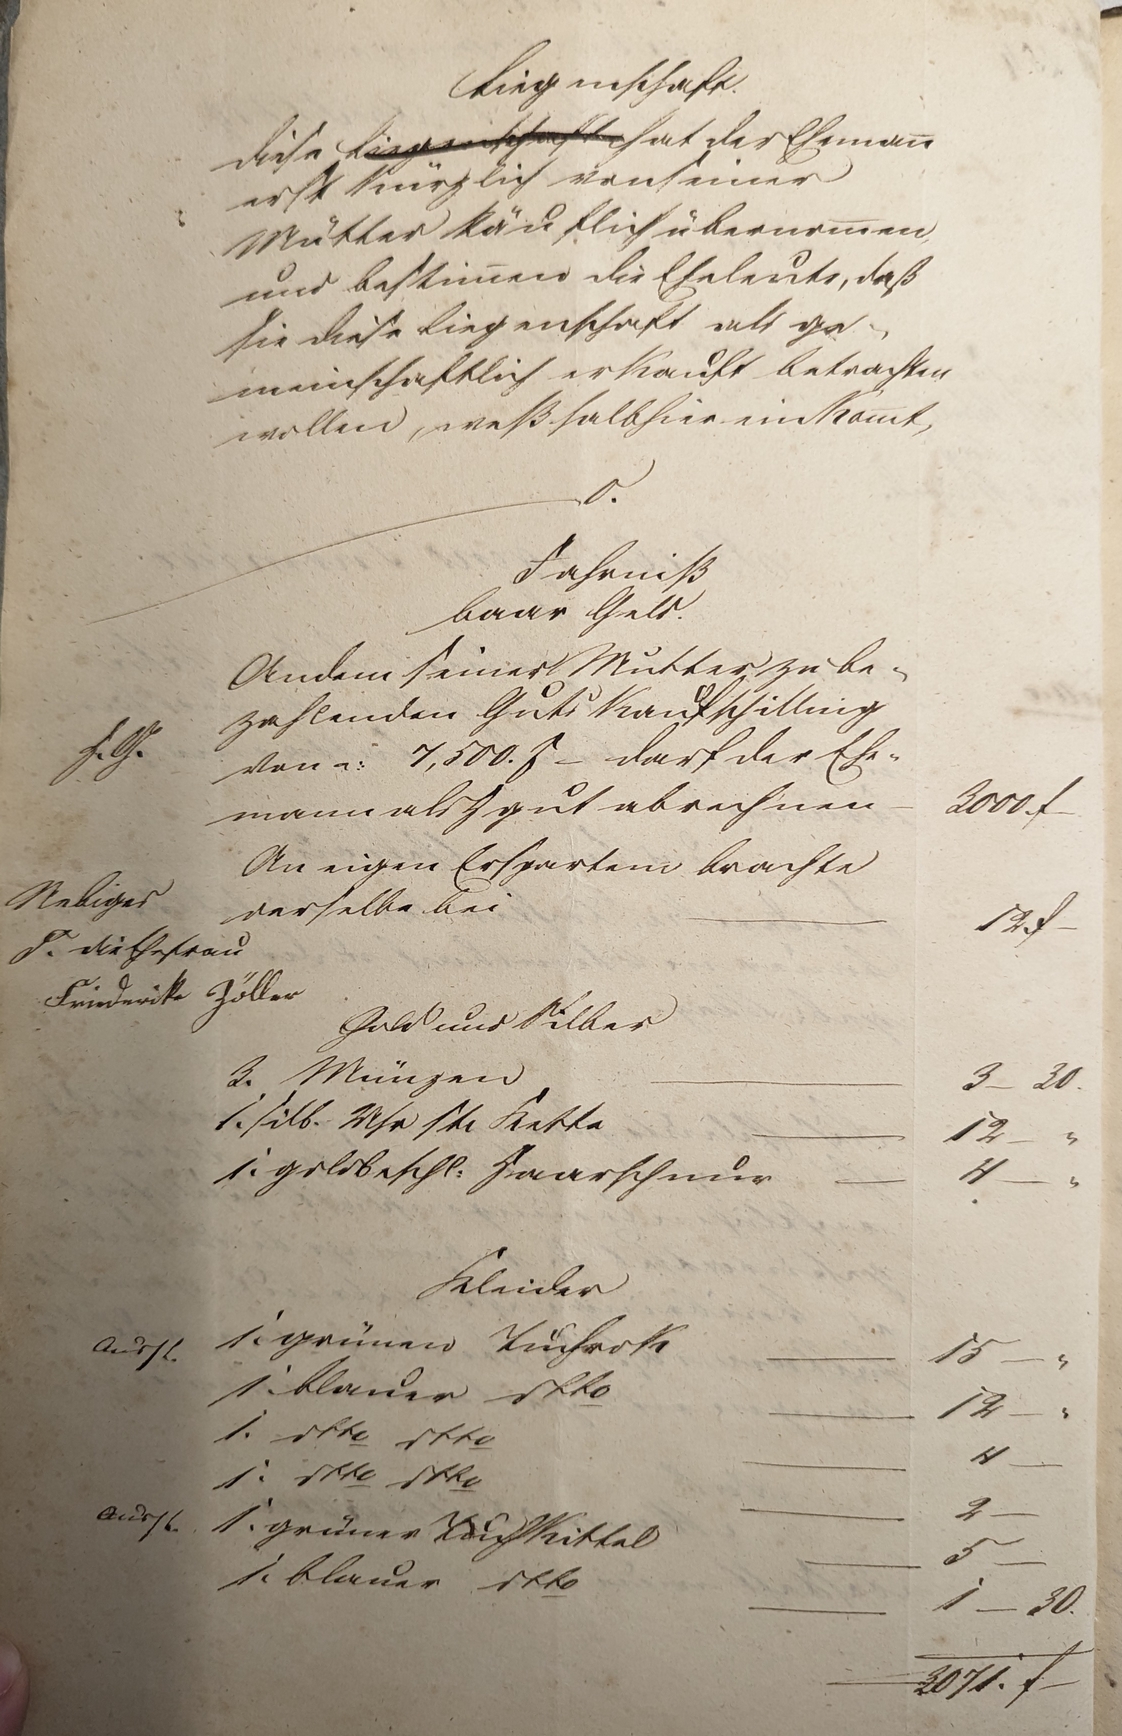 Liegenschaft.
Diese Liegenschaft hat der Ehemañ
erst kürzlich von seiner
Mutter käuflich übernom̄en,
und bestim̄en die Eheleute, daß
sie diese Liegenschaft als ge-
meinschaftlich erkauft betrachten
wollen, weßhalb hier ein kom̄t,
0.
Fahrniß
baar Geld.
An dem seiner Mutter zu be-
zahlenden Guts Kaufschilling
von 7,500. f – darf der Ehe-
mann als gut abrechnen – 3000. f –
An eigen Erspartem brachte
derselbe bei 12. f –
Lediges
F. die Ehefrau
Friederike Zöller
Gold und Silber
3. Münzen 3 – 30.
1. silb. Uhr Kette 12 – "
1. goldbeschl: Haarschnur 4 – "
Kleider
1. grünen Tuchrok 15 – "
1. blauer dtto 12 – "
1. dtto dtto 4 –
1. dtto dtto 2 –
1. grüner Tuch Kittel 5 –
1. blauer dtto 1 – 30.
3071. f –